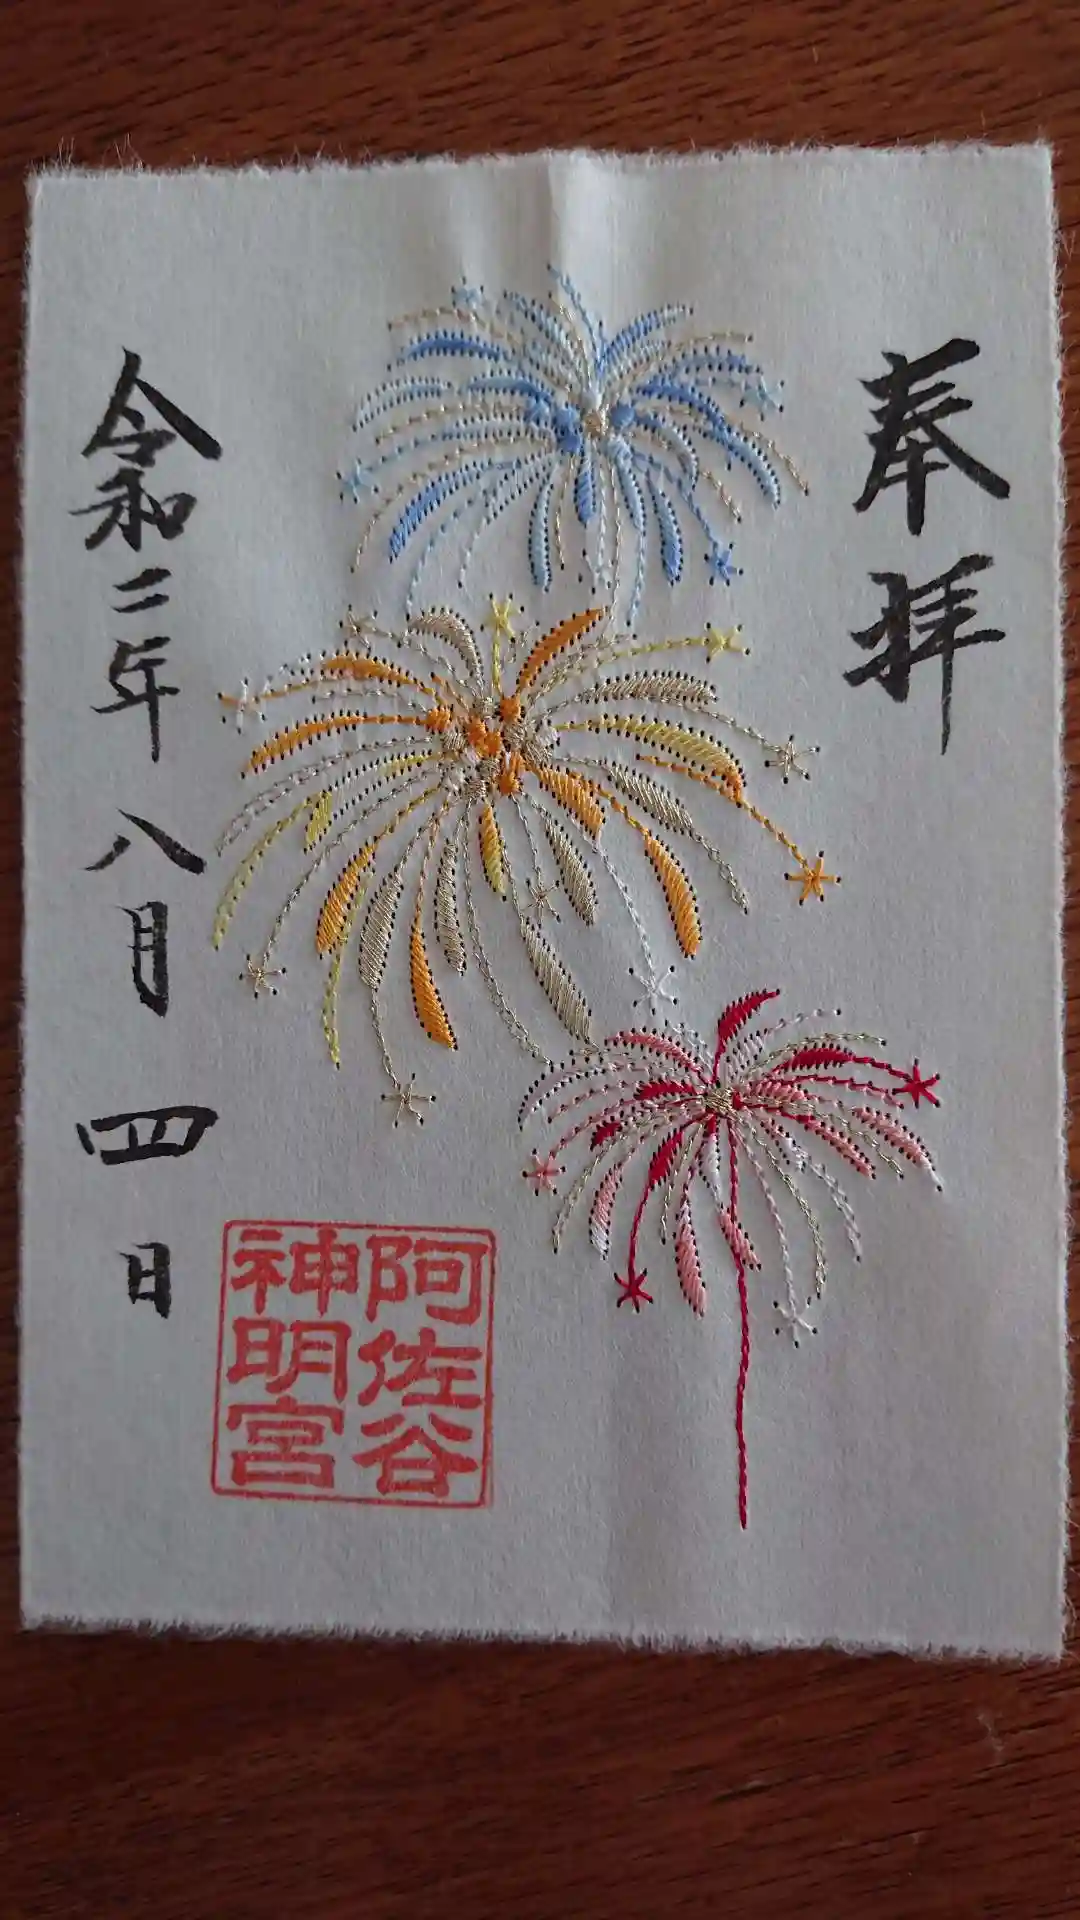 奉拝
阿佐谷
神明宮
令和二年八月四日